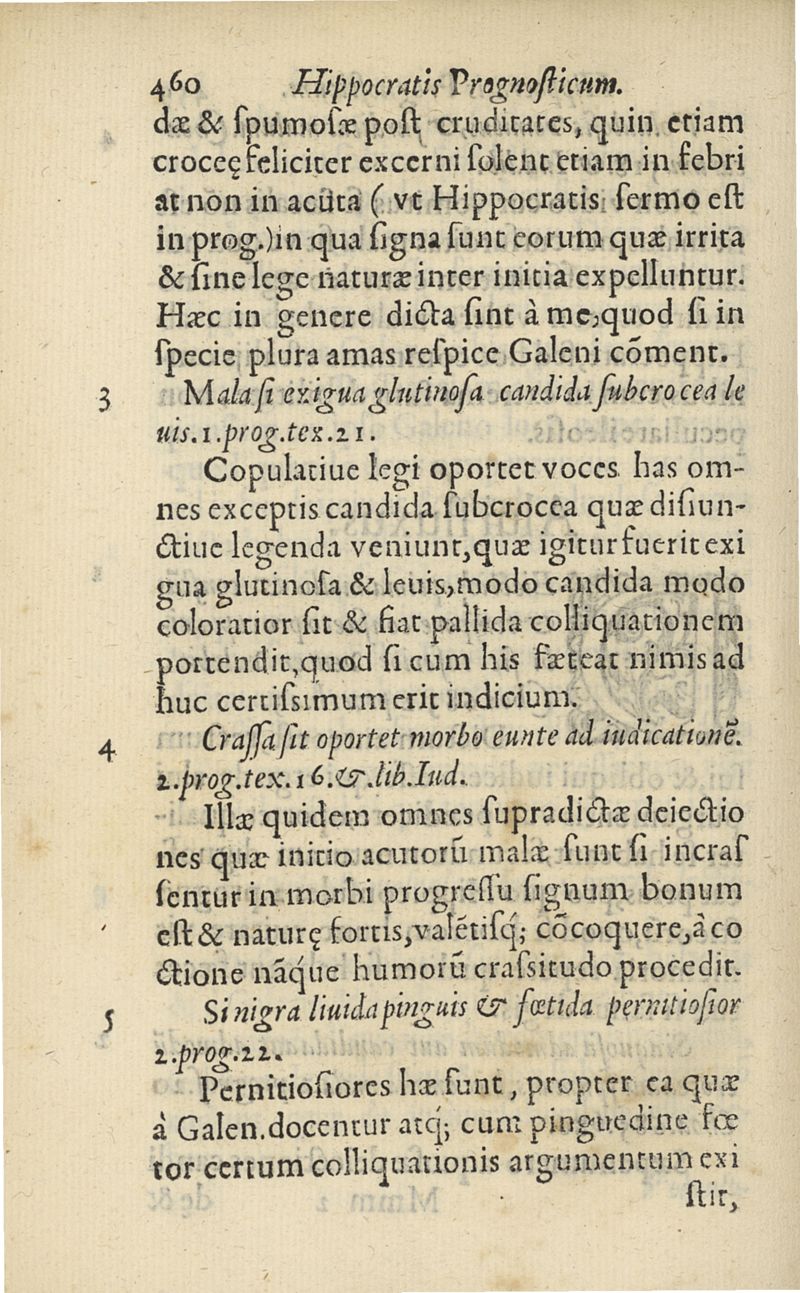 460 Hippocratis Prognosticum.
dæ & ſpumoſæ poſt cruditates, quin etiam
croceę feliciter excerni ſolent etiam in febri
at non in acuta ( vt Hippocratis ſermo eſt
in prog.)in qua ſigna ſunt eorum quæ irrita
& ſine lege naturæ inter initia expelluntur.
Hæc in genere dicta ſint à me,quod ſi in
ſpecie plura amas reſpice Galeni cōment.
3 Mala ſi exigua glutinoſa candida ſubcrocea le
uis.1.prog.tex.21.
Copulatiue legi oportet voces has om-
nes exceptis candida ſubcrocea quæ diſiun-
ctiue legenda veniunt,quæ igitur fuerit exi
gua glutinoſa & leuis,modo candida modo
coloratior ſit & fiat pallida colliquationem
portendit,quod ſi cum his fæteat nimis ad
huc certiſsimum erit indicium.
4 Craſſa ſit oportet morbo eunte ad iudicationē.
2.prog.tex.16.&.lib.Iud.
Illæ quidem omnes ſupradictæ deiectio
nes quæ initio acutorū malæ ſunt ſi incraſ
ſentur in morbi progreſſu ſignum bonum
eſt & naturę fortis,valētiſq́; cōcoquere,à co
ctione nāq́ue humorū craſsitudo procedit.
5 Si nigra liuida pinguis & fœtida pernitioſior
2.prog.22.
Pernitioſiores hæ ſunt, propter ea quæ
à Galen.docentur atq́; cum pinguedine fœ
tor certum colliquationis argumentum exi
ſtit,